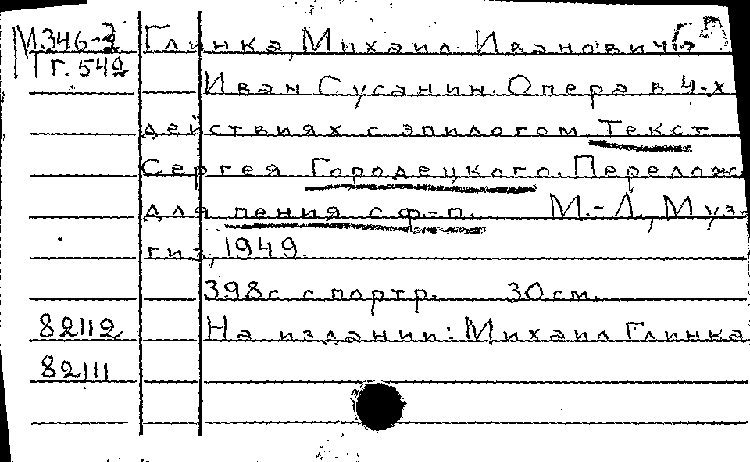 М.346-2 Глинка, Михаил Иванович
Гг. 542
Иван Сусанин. Опера в 4-х
действиях с эпилогом. Текст
Сергея Городецкого. Перелож.
для пения с ф-п. М.-Л., Муз-
гиз, 1949
398с. с портр. 30см.
82112 На издании: Михаил Глинка
82111